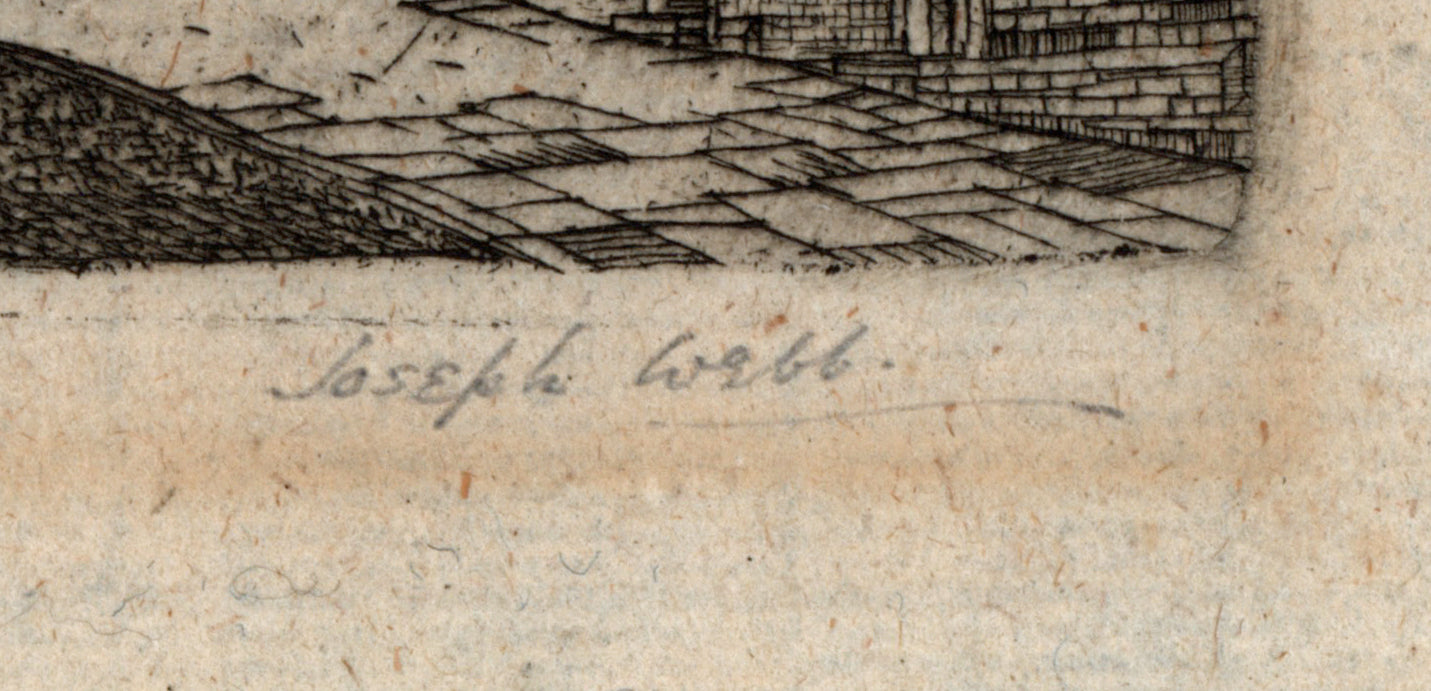 Joseph Webb.